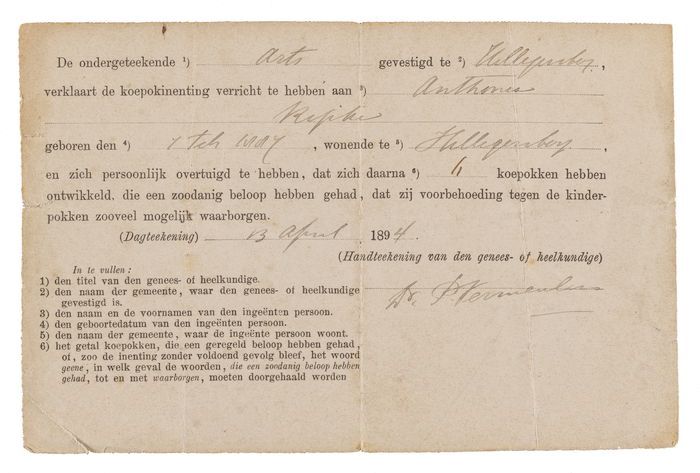 De ondergeteekende ¹) Arts gevestigd te ²) Hillegersberg,
verklaart de koepokinenting verricht te hebben aan ³) Anthonie
geboren den ⁴) 7 Feb 1887, wonende te ⁵) Hillegersberg,
en zich persoonlijk overtuigd te hebben, dat zich daarna ⁶) 6 koepokken hebben
ontwikkeld, die een zoodanig beloop hebben gehad, dat zij voorbehoeding tegen de kinder-
pokken zooveel mogelijk waarborgen.
(Dagteekening) 13 April 1894.
(Handteekening van den genees- of heelkundige)
Dr. P Vermeulen
In te vullen:
1) den titel van den genees- of heelkundige.
2) den naam der gemeente, waar de genees- of heelkundige
gevestigd is.
3) den naam en de voornamen van den ingeënten persoon.
4) den geboortedatum van den ingeënten persoon.
5) den naam der gemeente, waar de ingeënte persoon woont.
6) het getal koepokken, die een geregeld beloop hebben gehad,
of, zoo de inenting zonder voldoend gevolg bleef, het woord
geene, in welk geval de woorden, die een zoodanig beloop hebben
gehad, tot en met waarborgen, moeten doorgehaald worden